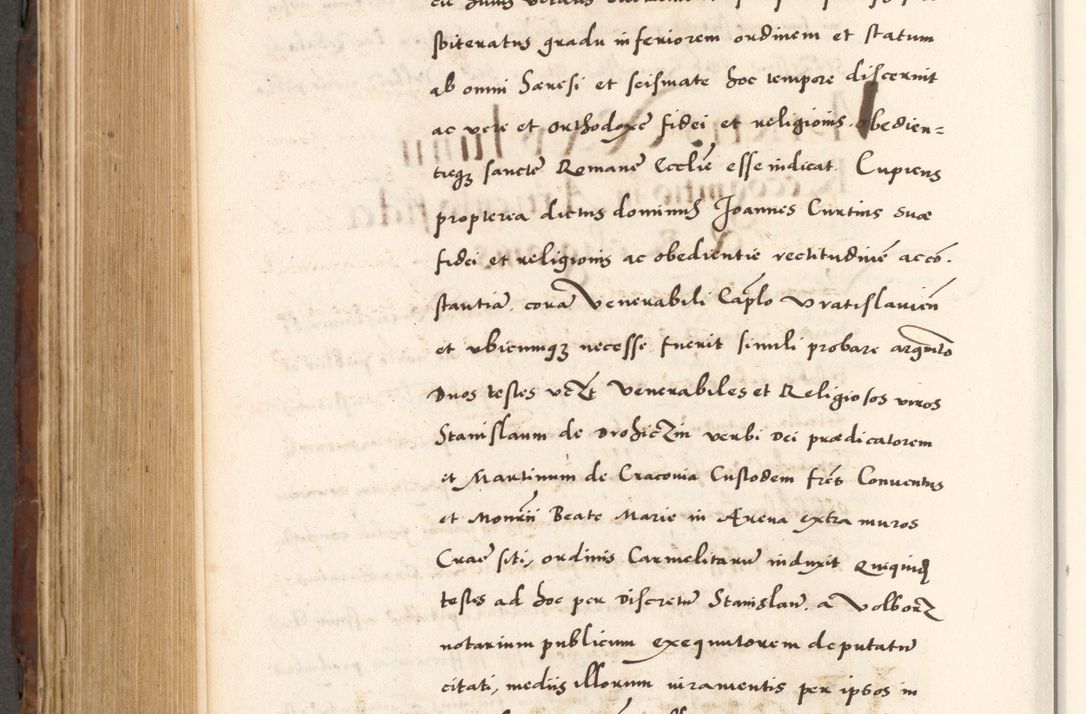 sbiteratus gradu inferiorem ordinem et statum
ab omni hæresi et scismate hoc tempore discernit
ac vere et orthodoxe fidei et religionis obedien=
tieqȝ sancte Romane Eccliē esse indicat. Cupiens
propterea dictus dominus Joannes Curtius suæ
fidei et religionis ac obedientie rectitudinē ac cō.
stantiā, corā Venerabili Caplo Vratislavieñ
et ubicumqȝ necesse fuerit simili probare argmto
Duos testes vcȝt Venerabiles et Religiosos viros
Stanislaum de Drohiczin verbi Dei prædicatorem
et Martinum de Cracovia Custodem frēs Conventus
et Monrii Beate Marie in Arena extra muros
Crac̄ siti, ordinis Carmelitarū induxit Quiquidȝ
testes ad hoc per Discretū Stanislaū. a Volborz
notarium publicum exequutorem deputatū
citati, mediis illorum iuramentis per ipsos in